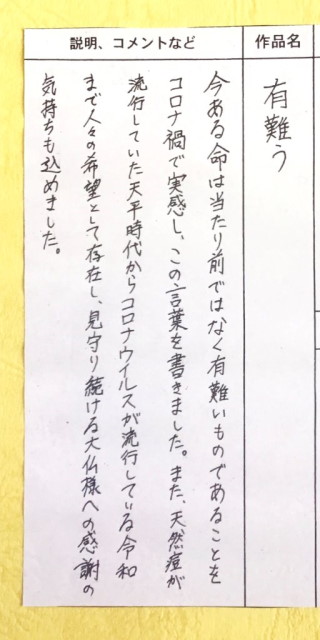 作品名
有難う
説明、コメントなど
今ある命は当たり前ではなく有難いものであることを
コロナ禍で実感し、この言葉を書きました。また、天然痘が
流行していた天平時代からコロナウイルスが流行している令和
まで人々の希望として存在し、見守り続ける大仏様への感謝の
気持ちも込めました。